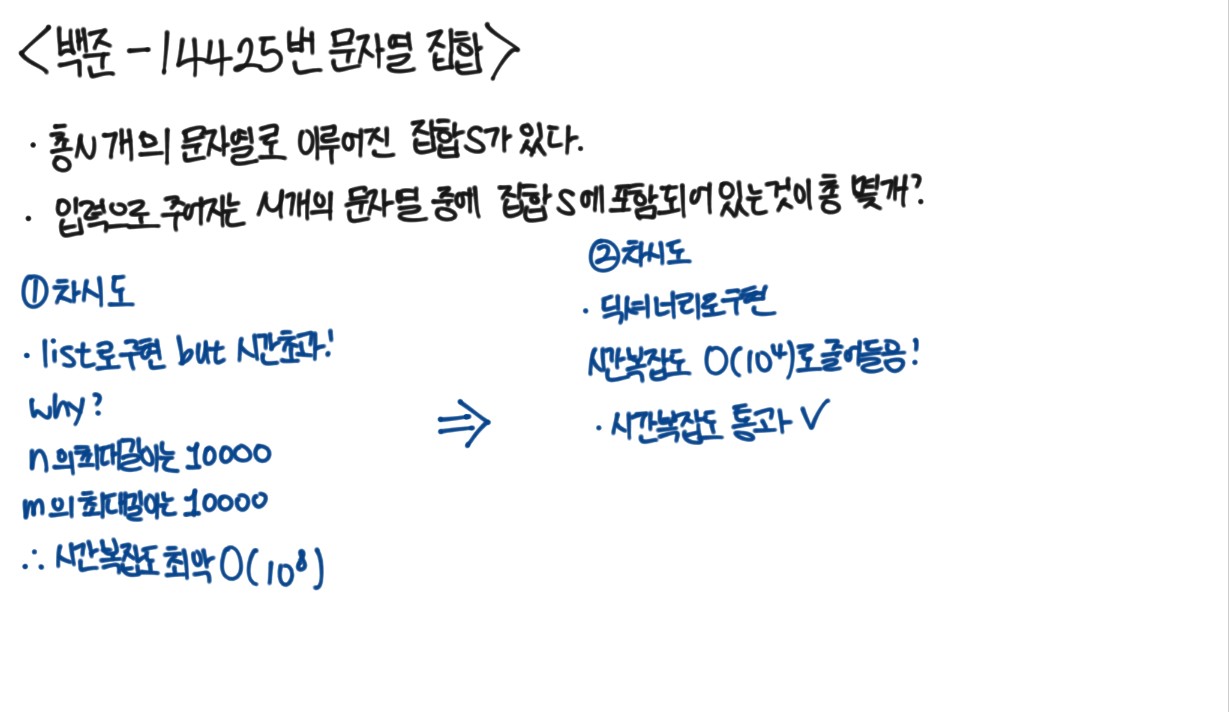 <백준 - 14425번 문자열 집합>
· 총 N개의 문자열로 이루어진 집합 S가 있다.
· 입력으로 주어지는 M개의 문자열 중에 집합 S에 포함되어 있는것이 총 몇개?
① 차시도
· list로 구현 but 시간초과!
why?
n의 최대길이는 10000
m의 최대길이는 10000
∴ 시간복잡도 최악 O(10⁸)
⇒
② 차시도
· 딕셔너리로 구현
시간복잡도 O(10⁴)로 줄어들음!
· 시간복잡도 통과 √